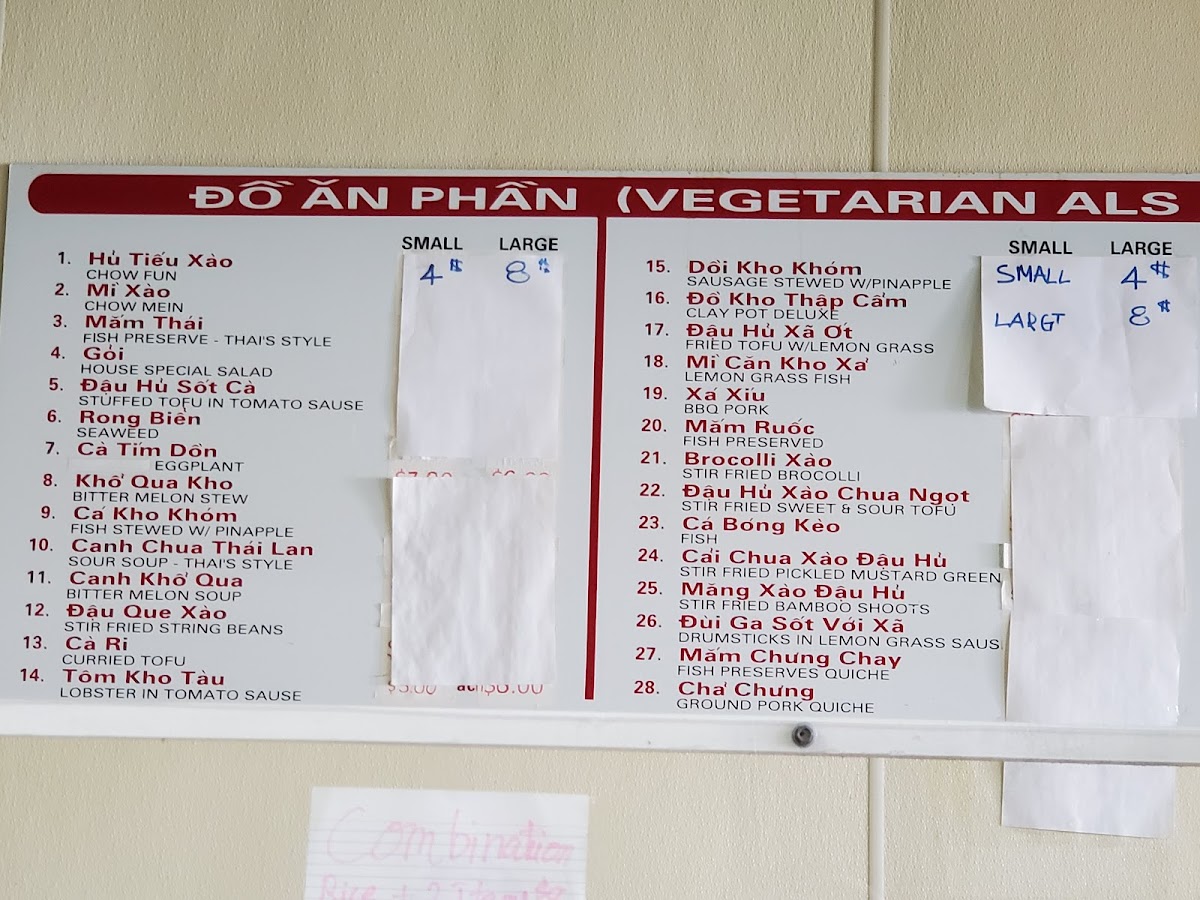 ĐỒ ĂN PHẦN (VEGETARIAN ALS
SMALL LARGE
4$ 8$
1. Hủ Tiếu Xào
CHOW FUN
2. Mì Xào
CHOW MEIN
3. Mắm Thái
FISH PRESERVE - THAI'S STYLE
4. Gỏi
HOUSE SPECIAL SALAD
5. Đậu Hủ Sốt Cà
STUFFED TOFU IN TOMATO SAUSE
6. Rong Biển
SEAWEED
7. Cà Tím Dồn
EGGPLANT
8. Khổ Qua Kho
BITTER MELON STEW
9. Cá Kho Khóm
FISH STEWED W/ PINAPPLE
10. Canh Chua Thái Lan
SOUR SOUP - THAI'S STYLE
11. Canh Khổ Qua
BITTER MELON SOUP
12. Đậu Que Xào
STIR FRIED STRING BEANS
13. Cà Ri
CURRIED TOFU
14. Tôm Kho Tàu
LOBSTER IN TOMATO SAUSE
SMALL LARGE
SMALL 4$
LARGT 8$
15. Dồi Kho Khóm
SAUSAGE STEWED W/PINAPPLE
16. Đồ Kho Thập Cẩm
CLAY POT DELUXE
17. Đậu Hủ Xã Ơt
FRIED TOFU W/LEMON GRASS
18. Mì Căn Kho Xả
LEMON GRASS FISH
19. Xá Xíu
BBQ PORK
20. Mắm Ruốc
FISH PRESERVED
21. Brocolli Xào
STIR FRIED BROCOLLI
22. Đậu Hủ Xào Chua Ngọt
STIR FRIED SWEET & SOUR TOFU
23. Cá Bóng Kèo
FISH
24. Cải Chua Xào Đậu Hủ
STIR FRIED PICKLED MUSTARD GREEN
25. Măng Xào Đậu Hủ
STIR FRIED BAMBOO SHOOTS
26. Đùi Ga Sốt Với Xã
DRUMSTICKS IN LEMON GRASS SAUS
27. Mắm Chưng Chay
FISH PRESERVES QUICHE
28. Chả Chưng
GROUND PORK QUICHE
Combination